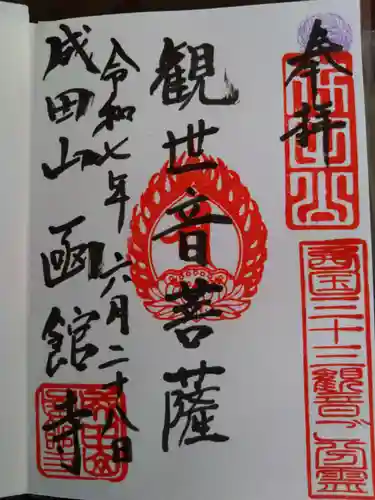 奉拝
西国三十三観音ご分霊
観世音菩薩
令和七年六月二十八日
成田山函館寺